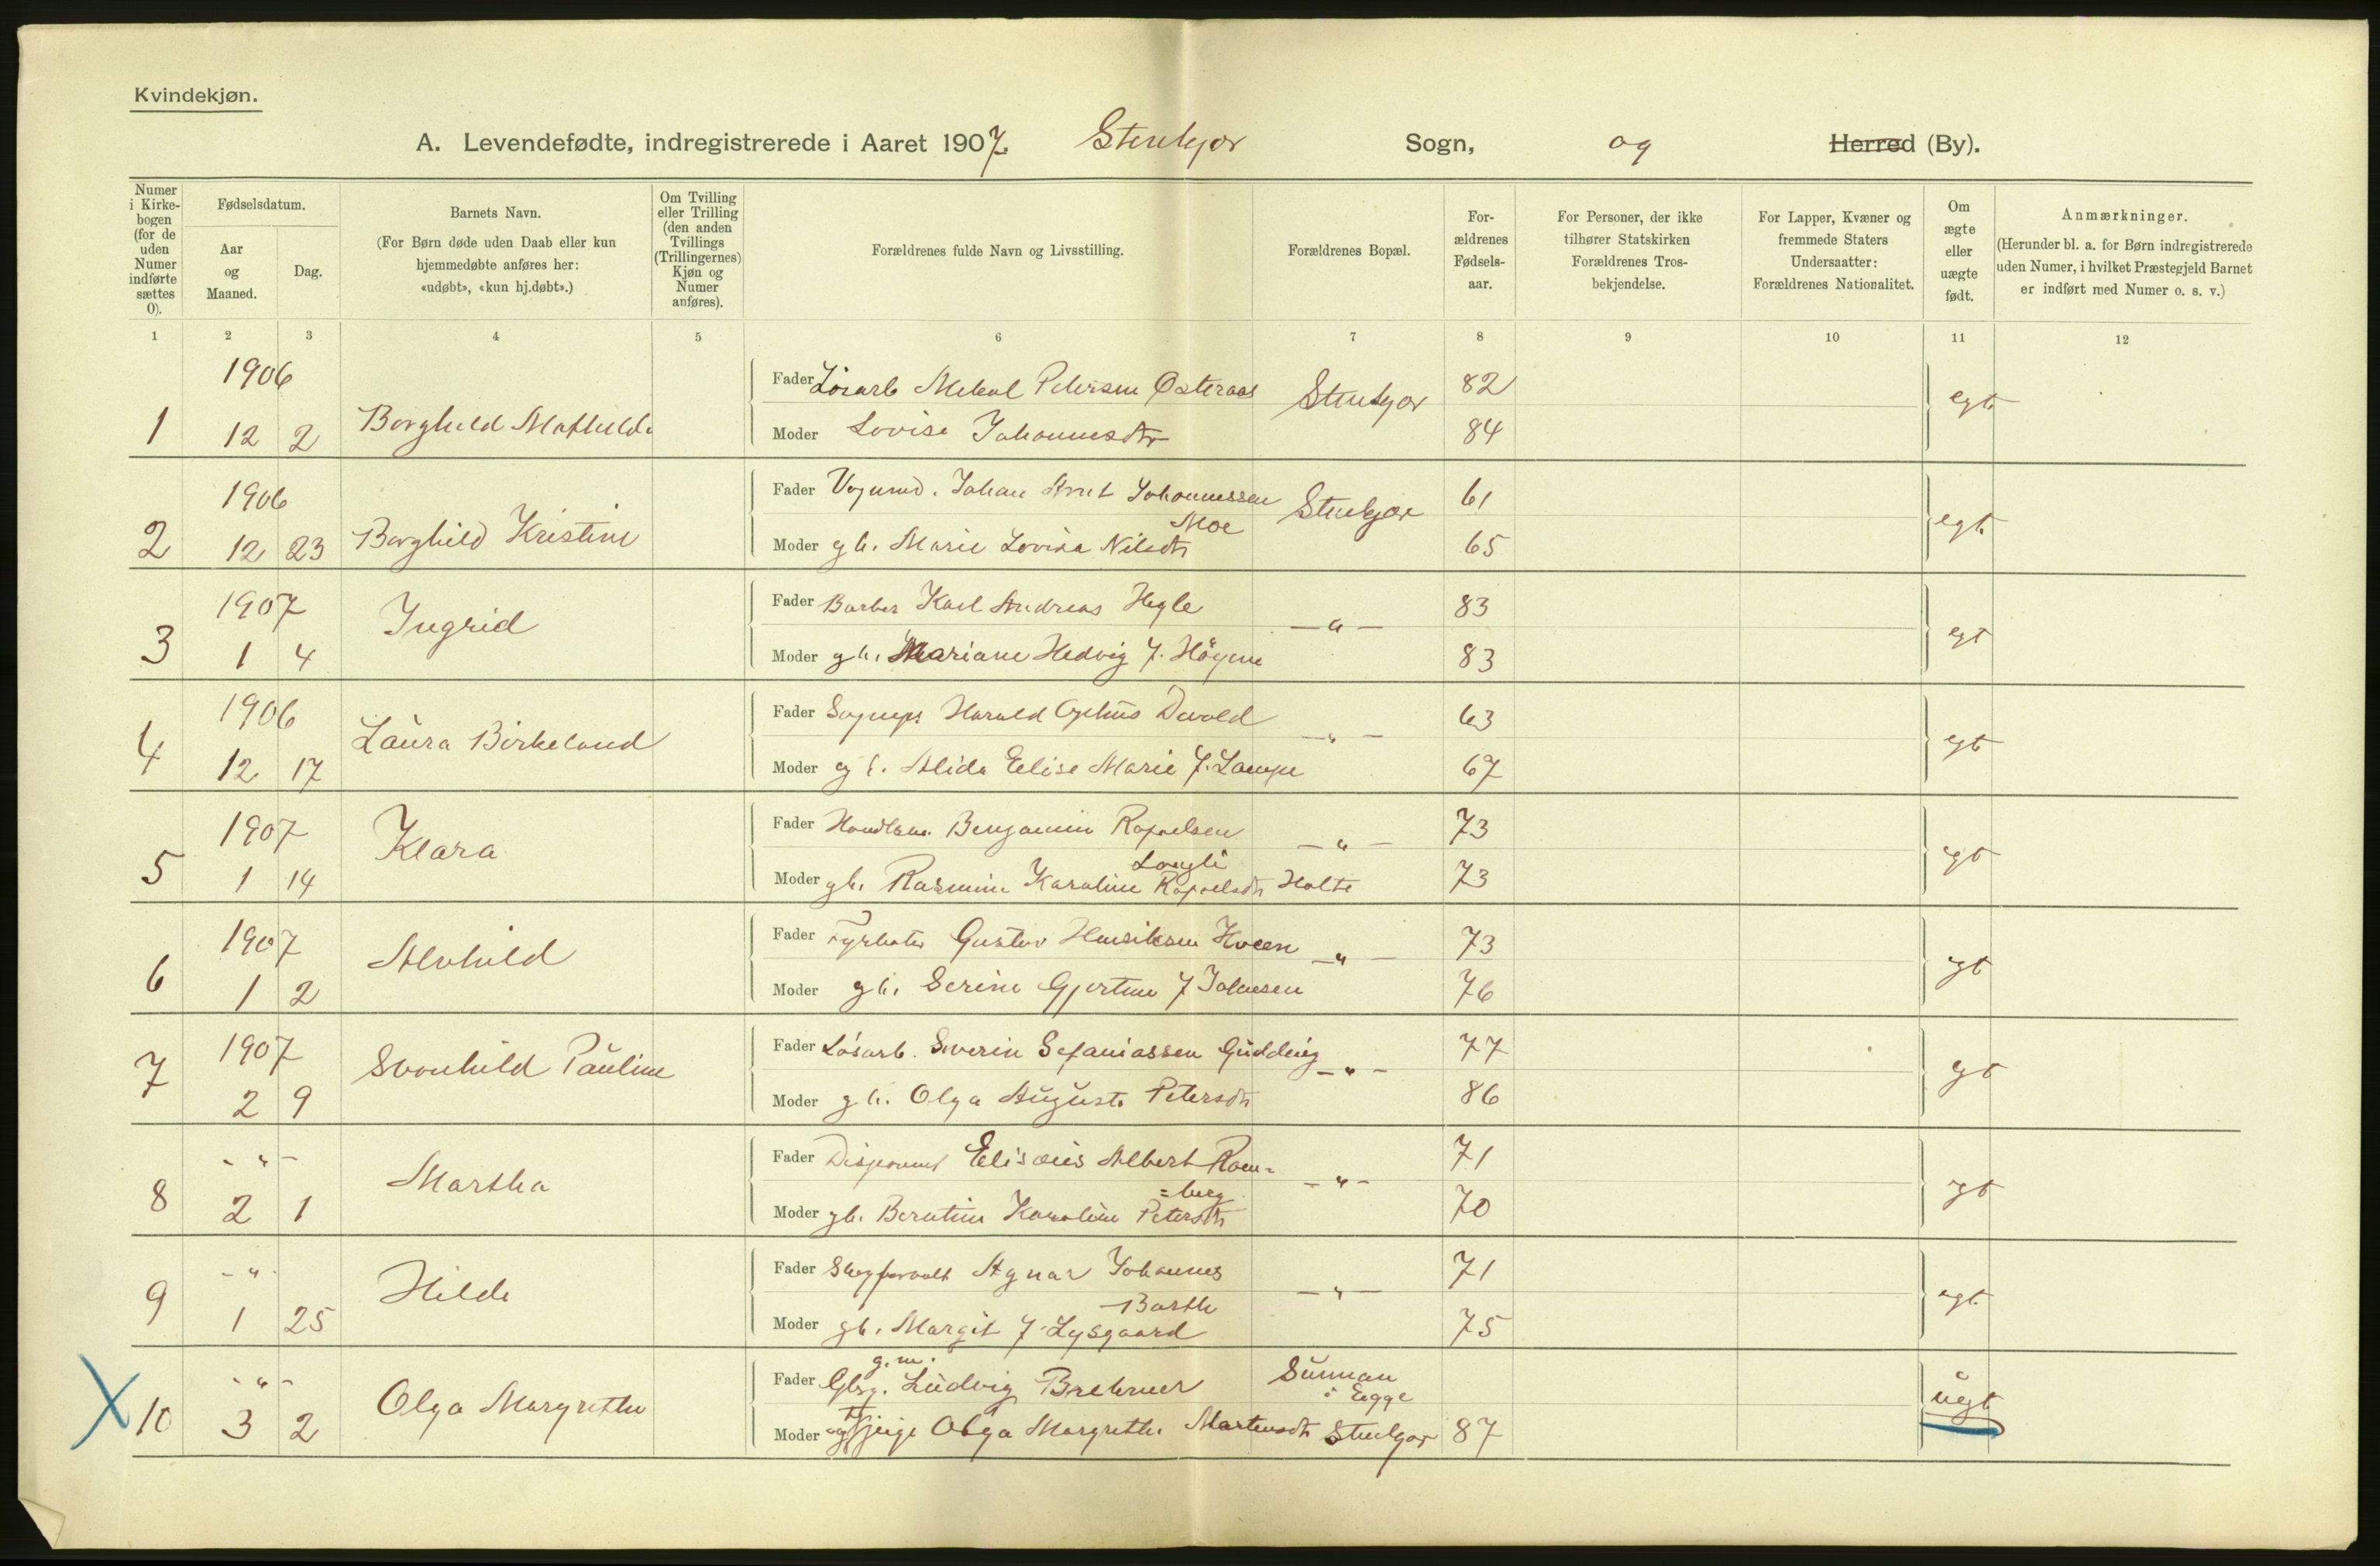 Kvindekjøn.
A. Levendefødte, indregistrerede i Aaret 1907. Stenkjær Sogn, og Herred (By).
Numer i Kirkebogen (for de uden Numer indførte sættes 0).
Fødselsdatum.
Aar og Maaned.
Dag.
Barnets Navn.
(For Børn døde uden Daab eller kun hjemmedøbte anføres her: «udøbt», «kun hj.døbt».)
Om Tvilling eller Trilling (den anden Tvillings (Trillingernes) Kjøn og Numer anføres).
Forældrenes fulde Navn og Livsstilling.
Forældrenes Bopæl.
Forældrenes Fødselsaar.
For Personer, der ikke tilhører Statskirken Forældrenes Trosbekjendelse.
For Lapper, Kvæner og fremmede Staters Undersaatter: Forældrenes Nationalitet.
Om ægte eller uægte født.
Anmærkninger.
(Herunder bl. a. for Børn indregistrerede uden Numer, i hvilket Præstegjeld Barnet er indført med Numer o. s. v.)
1 2 3 4 5 6 7 8 9 10 11 12
1906
Fader Løsarb Mekal Petersen Østeraas Stenkjær 82
1 12 2 Borghild Mathilde egt.
Moder Lovise Johannesdtr 84
1906
Fader Johan Arnt Johannessen Stenkjær 61
Moe
2 12 23 Borghild Kristine egt.
Moder gh. Marie Lovisa Nilsdtr 65
1907
Fader Barber Karl Andreas Hegle —"— 83
3 1 4 Ingrid egt
Moder gh. Mariane Hedvig f. Høyem 83
1906
Fader Harald Ophus Davold —"— 63
4 12 17 Laura Birkeland egt
Moder gh. Alida Elise Marie f. Lampe 67
1907
Fader Handlsm. Benjamin Rafaelsen —"— 73
Langli
5 1 14 Klara egt
Moder gh. Rasmine Karoline Rafaelsdtr Holte 73
1907
Fader Fyrbøter Gustav Henriksen Hveen —"— 73
6 1 2 Alvhild egt
Moder gh. Serine Gjertine f Johnsen 76
1907
Fader Løsarb. Severin Sefaniassen Gudding —"— 77
7 2 9 Svonhild Pauline egt
Moder gh. Olga Augusta Petersdtr 86
- " -
Fader Disponent Elisæus Albert Rom= —"— 71
=berg
8 2 1 Martha egt
Moder gh. Berntine Karoline Petersdtr 70
- " -
Fader Skogforvalt Agnar Johannes —"— 71
Barth
9 1 25 Hilde egt.
Moder gh. Margit f. Lysgaard 75
- " -
g.m.
Fader Gbsg. Ludvig Brehmer Sunnan
i Egge
10 3 2 Olga Margrethe uegt
Moder Olga Margrethe Martensdtr Stenkjær 87